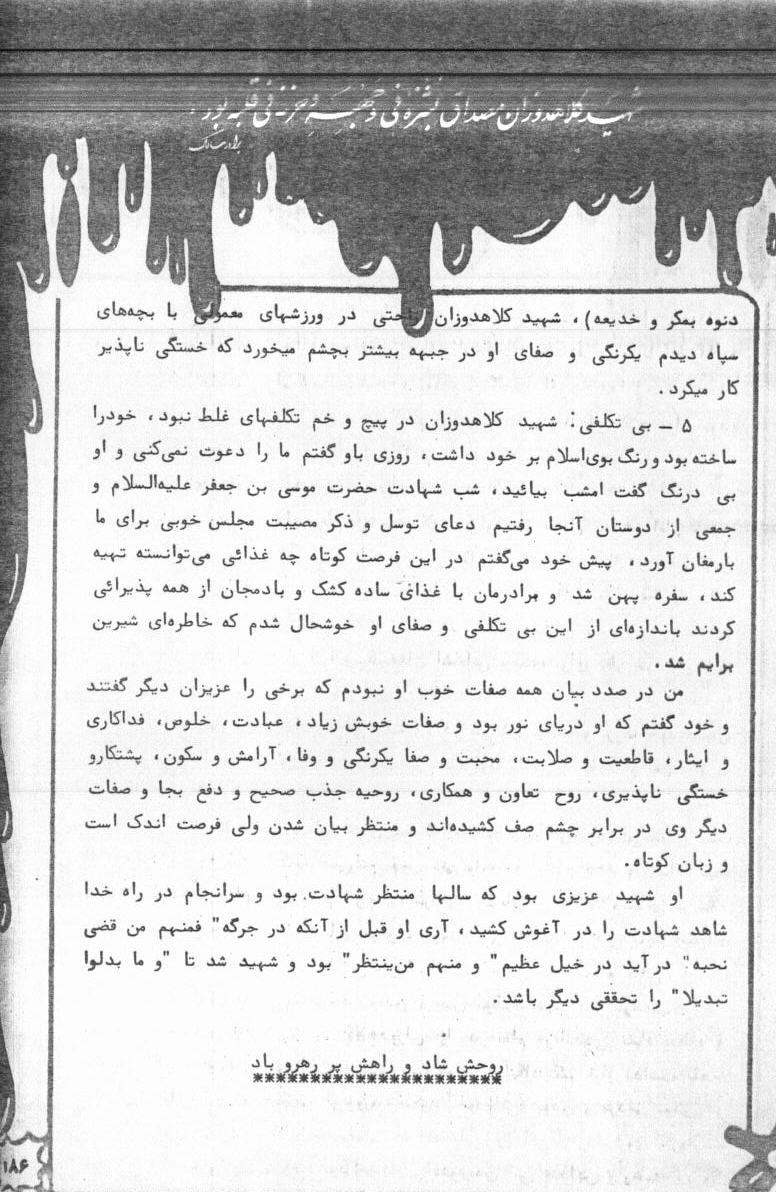 شهید کلاهدوزان مصداق بشره فی وجهه و حزنه فی قلبه بود :
دنوه بمکر و خدیعه) ، شهید کلاهدوزان راحتی در ورزشهای معمولی با بچه‌های
سپاه دیدم یکرنگی و صفای او در جبهه بیشتر بچشم میخورد که خستگی ناپذیر
کار میکرد .
۵ – بی تکلفی : شهید کلاهدوزان در پیچ و خم تکلفهای غلط نبود ، خودرا
ساخته بود و رنگ بوی‌اسلام بر خود داشت ، روزی باو گفتم ما را دعوت نمی‌کنی و او
بی درنگ گفت امشب بیائید ، شب شهادت حضرت موسی بن جعفر علیه‌السلام و
جمعی از دوستان آنجا رفتیم دعای توسل و ذکر مصیبت مجلس خوبی برای ما
بارمغان آورد ، پیش خود می‌گفتم در این فرصت کوتاه چه غذائی می‌توانسته تهیه
کند ، سفره پهن شد و برادرمان با غذای ساده کشک و بادمجان از همه پذیرائی
کردند باندازه‌ای از این بی تکلفی و صفای او خوشحال شدم که خاطره‌ای شیرین
برایم شد .
من در صدد بیان همه صفات خوب او نبودم که برخی را عزیزان دیگر گفتند
و خود گفتم که او دریای نور بود و صفات خوبش زیاد ، عبادت ، خلوص ، فداکاری
و ایثار ، قاطعیت و صلابت ، محبت و صفا یکرنگی و وفا ، آرامش و سکون ، پشتکارو
خستگی ناپذیری ، روح تعاون و همکاری ، روحیه جذب صحیح و دفع بجا و صفات
دیگر وی در برابر چشم صف کشیده‌اند و منتظر بیان شدن ولی فرصت اندک است
و زبان کوتاه .
او شهید عزیزی بود که سالها منتظر شهادت بود و سرانجام در راه خدا
شاهد شهادت را در آغوش کشید ، آری او قبل از آنکه در جرگه" فمنهم من قضی
نحبه" درآید در خیل عظیم" و منهم من‌ینتظر" بود و شهید شد تا "و ما بدلوا
تبدیلا" را تحققی دیگر باشد .
روحش شاد و راهش پر رهرو باد
************************
۱۸۶